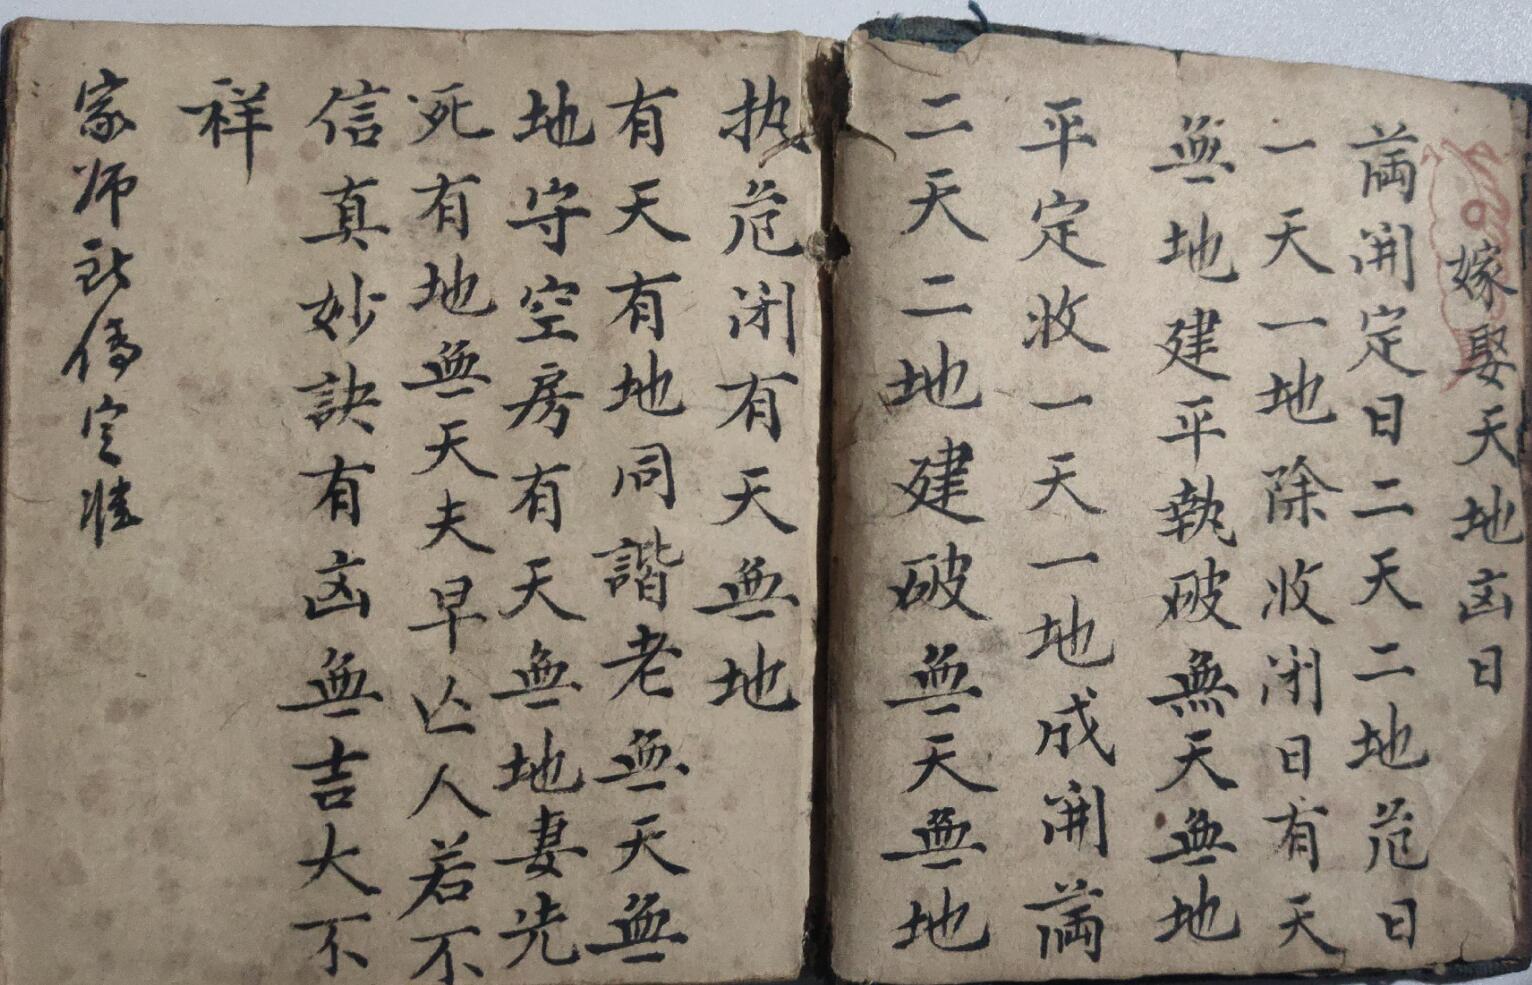 嫁娶天地凶日
滿開定日二天二地危日
一天一地除收闭日有天
無地建平執破無天無地
平定收一天一地成開滿
二天二地建破無天無地
执危闭有天無地
有天有地同諧老無天無
地守空房有天無地妻先
死有地無天夫早亡人若不
信真妙訣有凶無吉大不
祥
家师